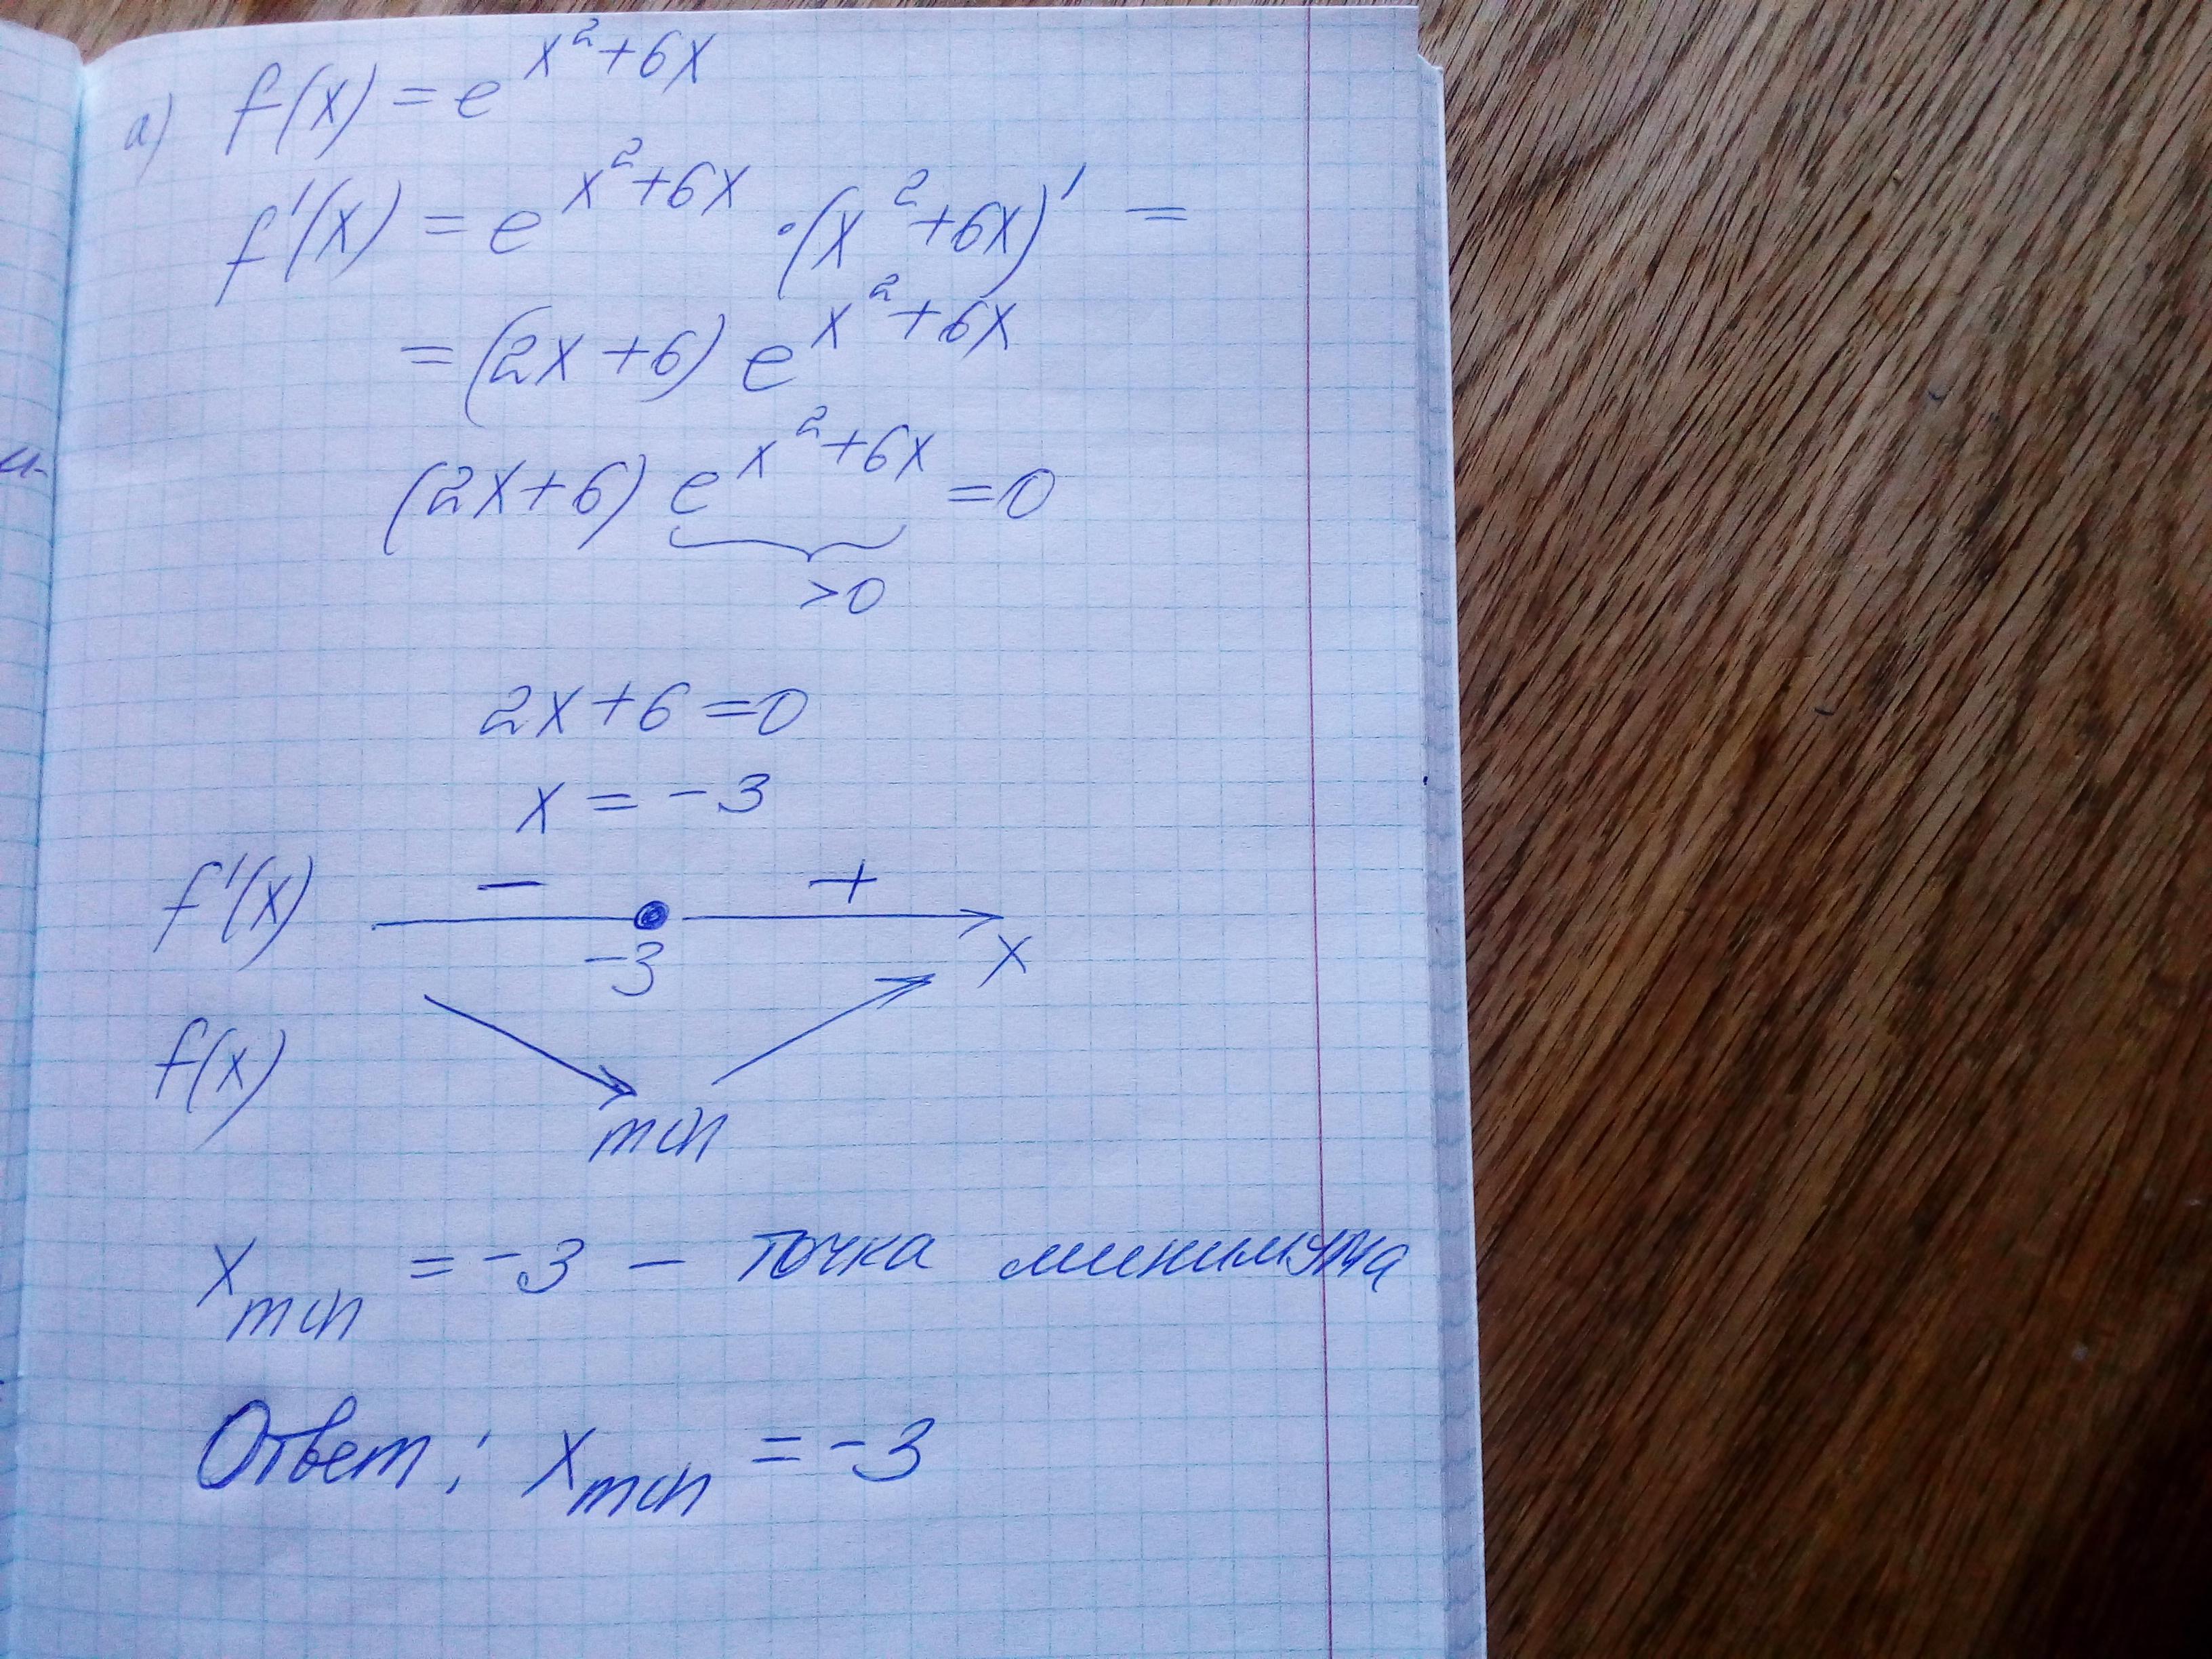 а) f(x) = e^{x²+6x}
f'(x) = e^{x²+6x} · (x²+6x)' =
= (2x+6) e^{x²+6x}
(2x+6) e^{x²+6x} = 0
>0
2x+6=0
x = -3
f'(x) - +
-3 x
f(x)
min
x_{min} = -3 - точка минимума
Ответ: x_{min} = -3